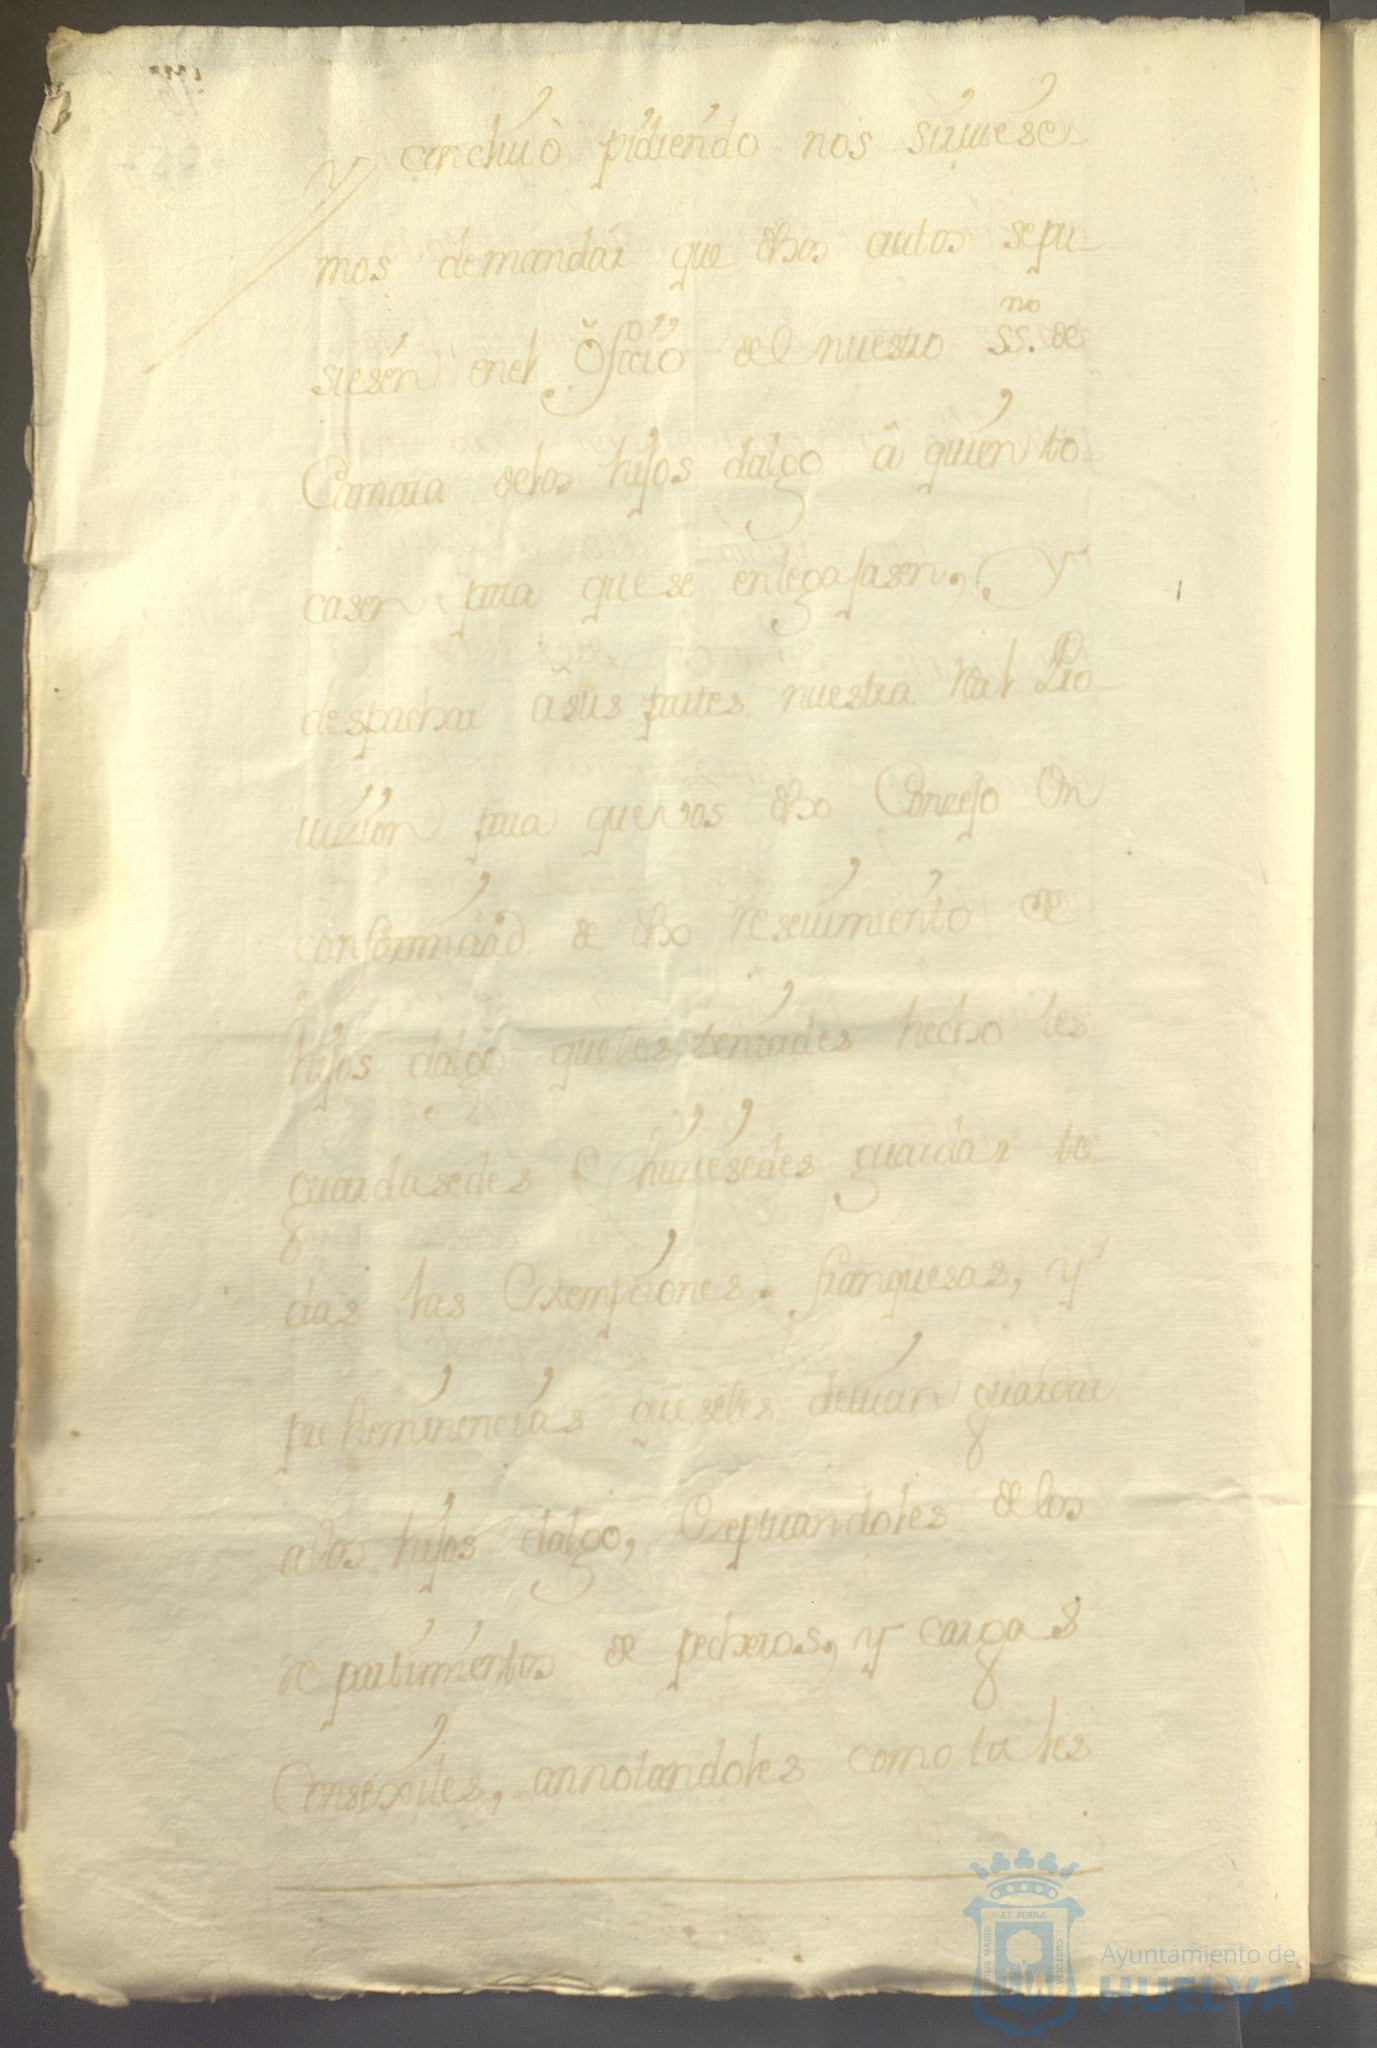 y concluiò pidiendo nos siruiese-
mos demandar que dhos autos sepu-
siesen enel Oficio del nuestro SS.no de
Camara delos hijos dalgo â quien to-
casen para que se entregasasen, y
despachar âsus partes nuestra Real Pro-
uizion para que vos dho Conzejo En
conformidad de dho reseuimiento de
hijos dalgo queles teniades hecho les
guardasedes e hiziesedes guardar to
das las Exempciones, franquesas, y
preheminencias que seles deuian guardar
alos hijos dalgo, Ezeptuandoles delos
repartimientos de pecheros, y cargas
Consexiles, annotandoles como tales
Ayuntamiento de
HUELVA